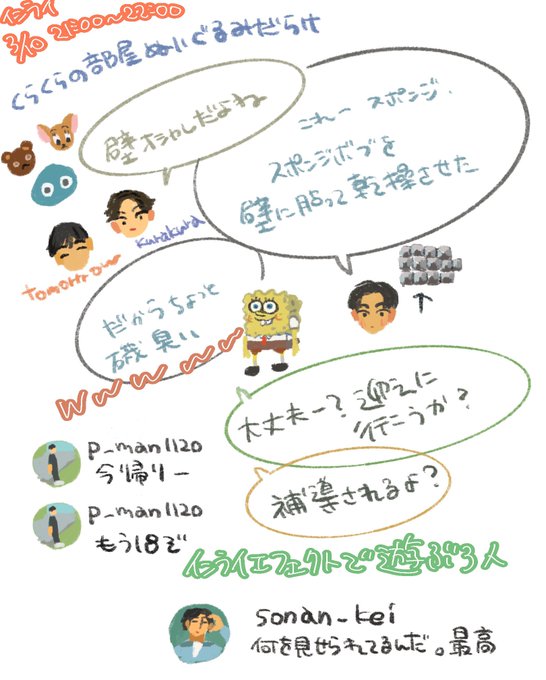 インライ
3/10 21:00~22:00
くらくらの部屋ぬいぐるみだらけ
壁オシャレだよね
これー スポンジ、
スポンジボブを
壁に貼って乾燥させた
kurakura
tomorrow
だからちょっと
磯臭い
wwwww
大丈夫ー?迎えに
行こうか?
p_man1120
今帰りー
補導されるよ?
p_man1120
もう18ぞ
インライエフェクトで遊ぶ3人
sonan_kei
何を見せられてるんだ。最高